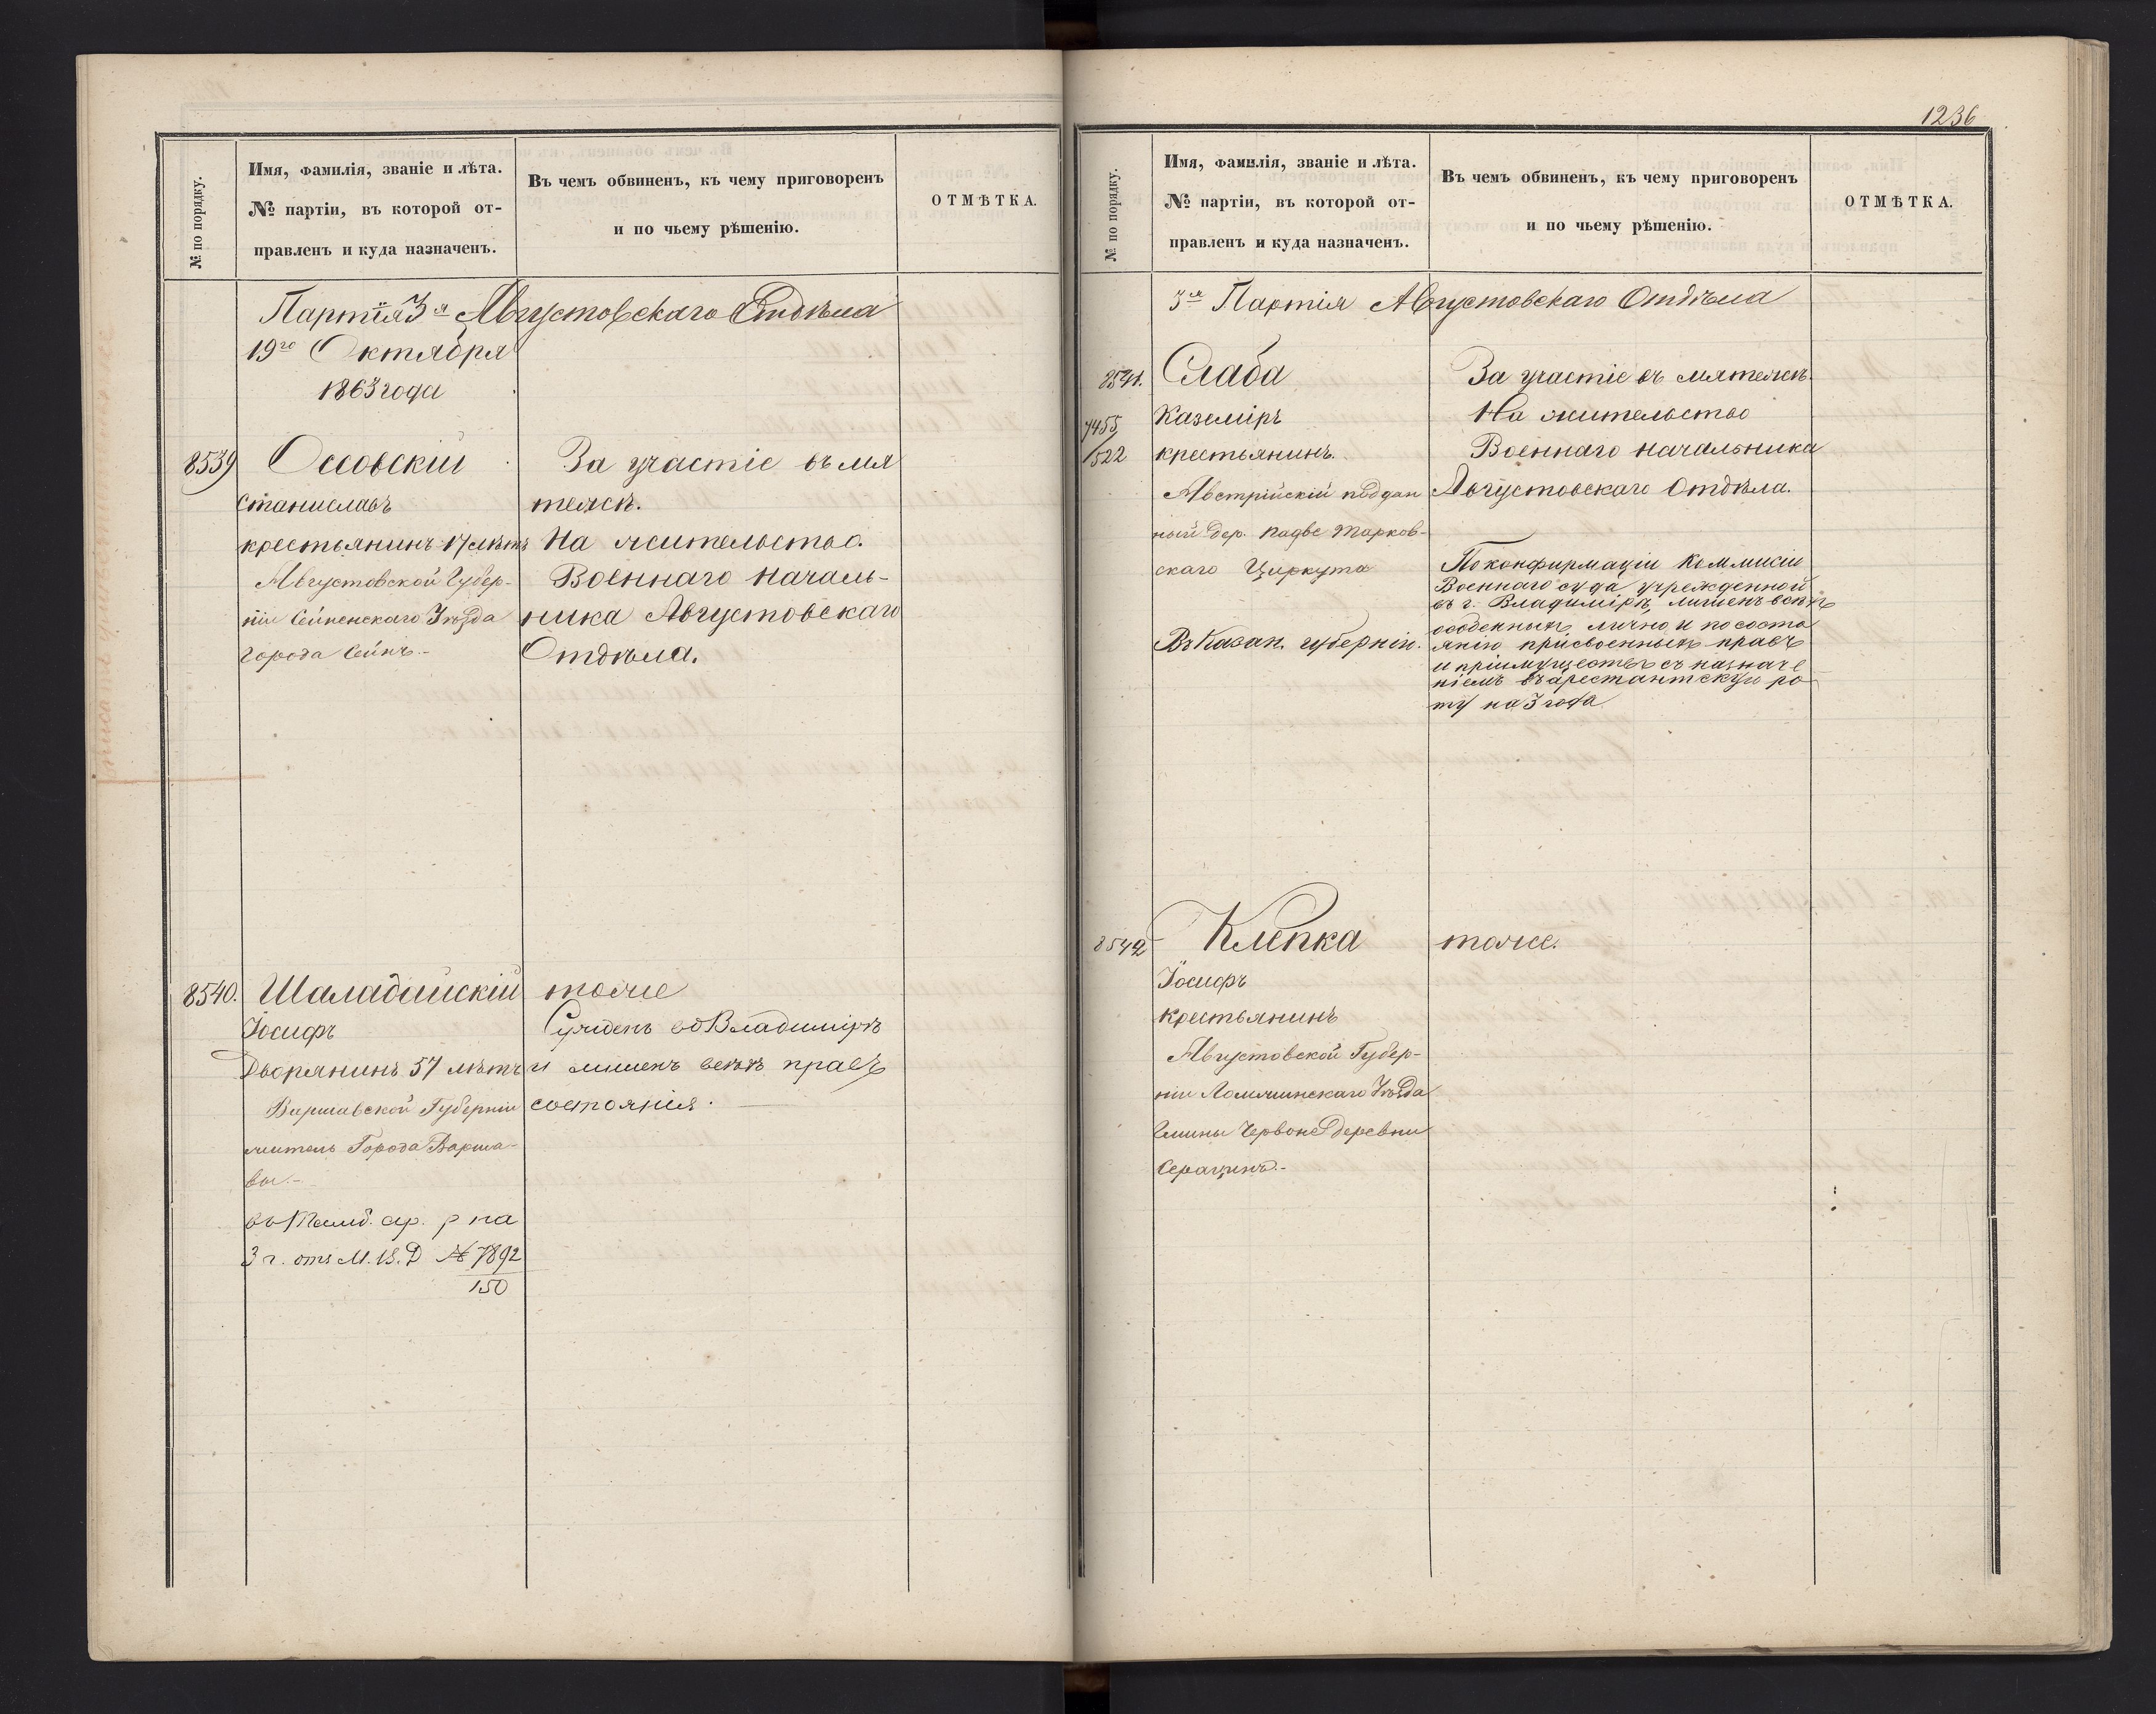 № по порядку.
Имя, фамилія, званіе и лѣта.
№ партіи, въ которой от-
правленъ и куда назначенъ.
Въ чемъ обвиненъ, къ чему приговоренъ
и по чьему рѣшенію.
ОТМѢТКА.
Партія 3я Августовскаго Отдѣла
19го Октября
1863 года
8539
Ссовскій
Станиславъ
крестьянинъ 17 лѣтъ
Августовской Губер-
ніи Сейненскаго Уѣзда
города Сейнъ.-
За участіе въ мя
тежѣ.
На жительство.
Военнаго Началь-
ника Августовскаго
Отдѣла.
8540.
Іосифъ
Дворянинъ 57 лѣтъ
Варшавской Губерніи
житель Города Варша-
вы.-
ар. р на
3 г. отъ М. В. Д № 7892
150
тоже
Сужденъ во Владимірѣ
и лишенъ всѣхъ правъ
состоянія.
1236
№ по порядку.
Имя, фамилія, званіе и лѣта.
№ партіи, въ которой от-
правленъ и куда назначенъ.
Въ чемъ обвиненъ, къ чему приговоренъ
и по чьему рѣшенію.
ОТМѢТКА.
3я Партія Августовскаго Отдѣла
8541.
7455
1522
Слаба
Каземіръ
крестьянинъ.
Австрійскій поддан
ный дер. Падве Тарков-
скаго Циркута
Въ Казан. губернію.
За участіе въ мятежѣ.
На жительство
Военнаго Начальника
Августовскаго Отдѣла.
По конфирмаціи Коммисіи
Военнаго суда учрежденной
въ г. Владимірѣ, лишенъ всѣхъ
особенныхъ лично и по состо
янію присвоенныхъ правъ
и пріимуществъ съ назначе
ніемъ въ арестантскую ро
ту на 3 года
8542
Клепка
Іосифъ
Крестьянинъ
Августовской Губер-
ніи Ломжинскаго Уѣзда
Гмины Червоне деревни
Серацинъ.-
тоже.